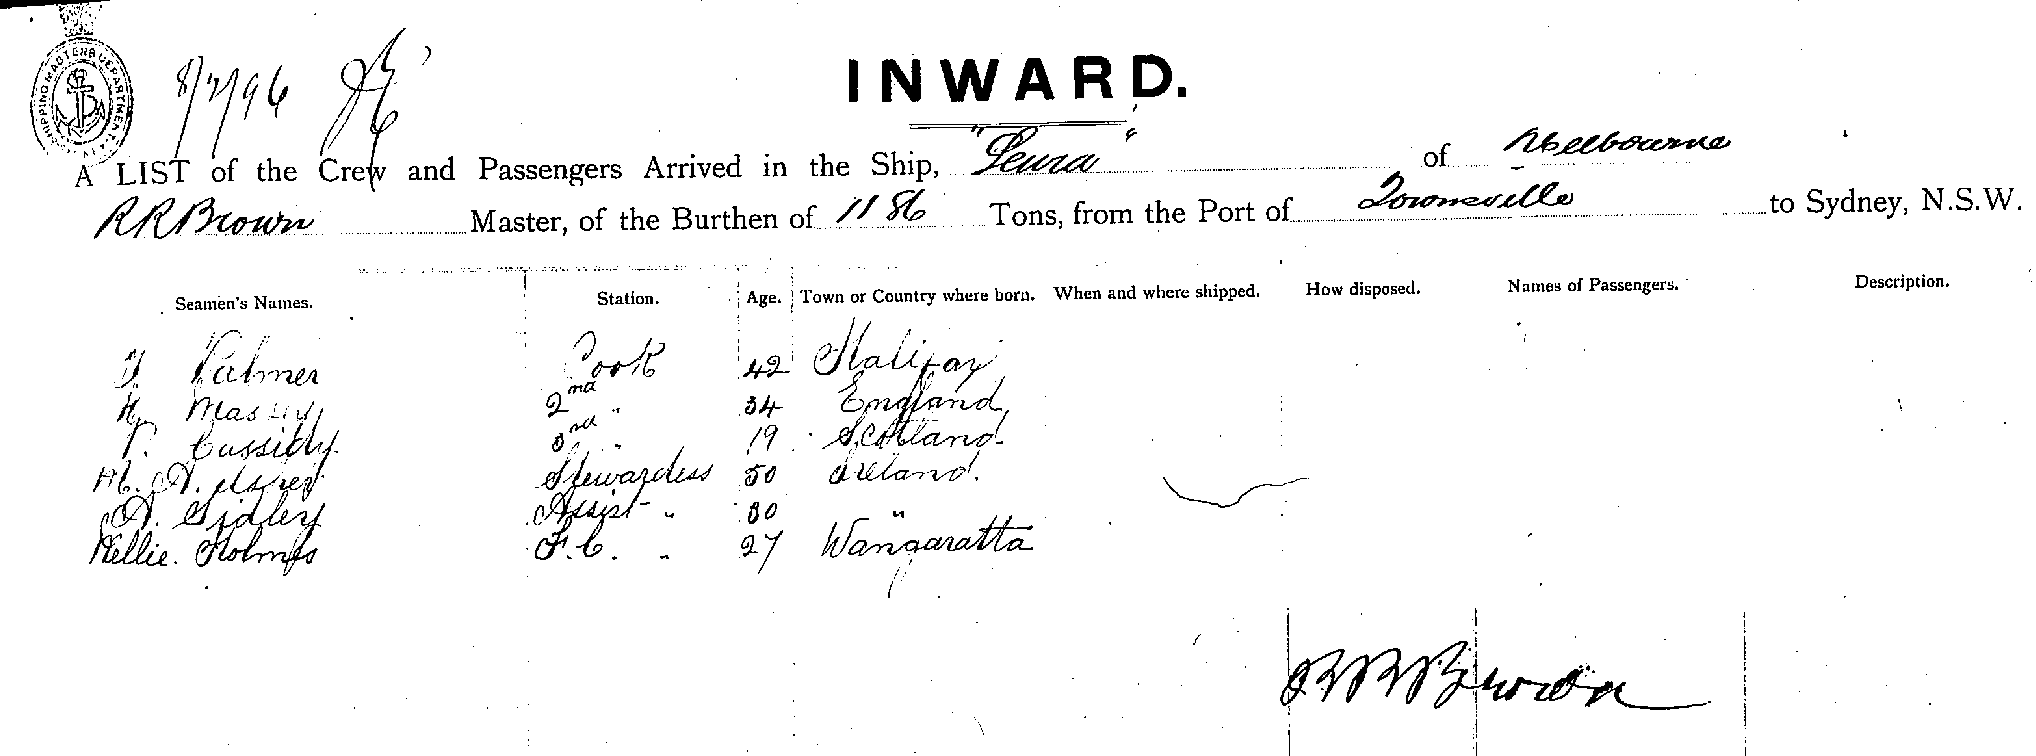 SHIPPING MASTERS DEPARTMENT
8/7/96
INWARD.
A LIST of the Crew and Passengers Arrived in the Ship, "Leura" of Melbourne
R R Brown Master, of the Burthen of 1186 Tons, from the Port of Townsville to Sydney, N.S.W.
Seamen's Names. Station. Age. Town or Country where born. When and where shipped. How disposed. Names of Passengers. Description.
Palmer Cook 42 Halifax
H. Massey 2nd " 34 England
Cassidy 3rd " 19 Scotland.
M. A. Stewardess 50 Ireland.
A. Sidley Assist " 30 "
Nellie. Holmes F.C. " 27 Wangaratta
R R Brown